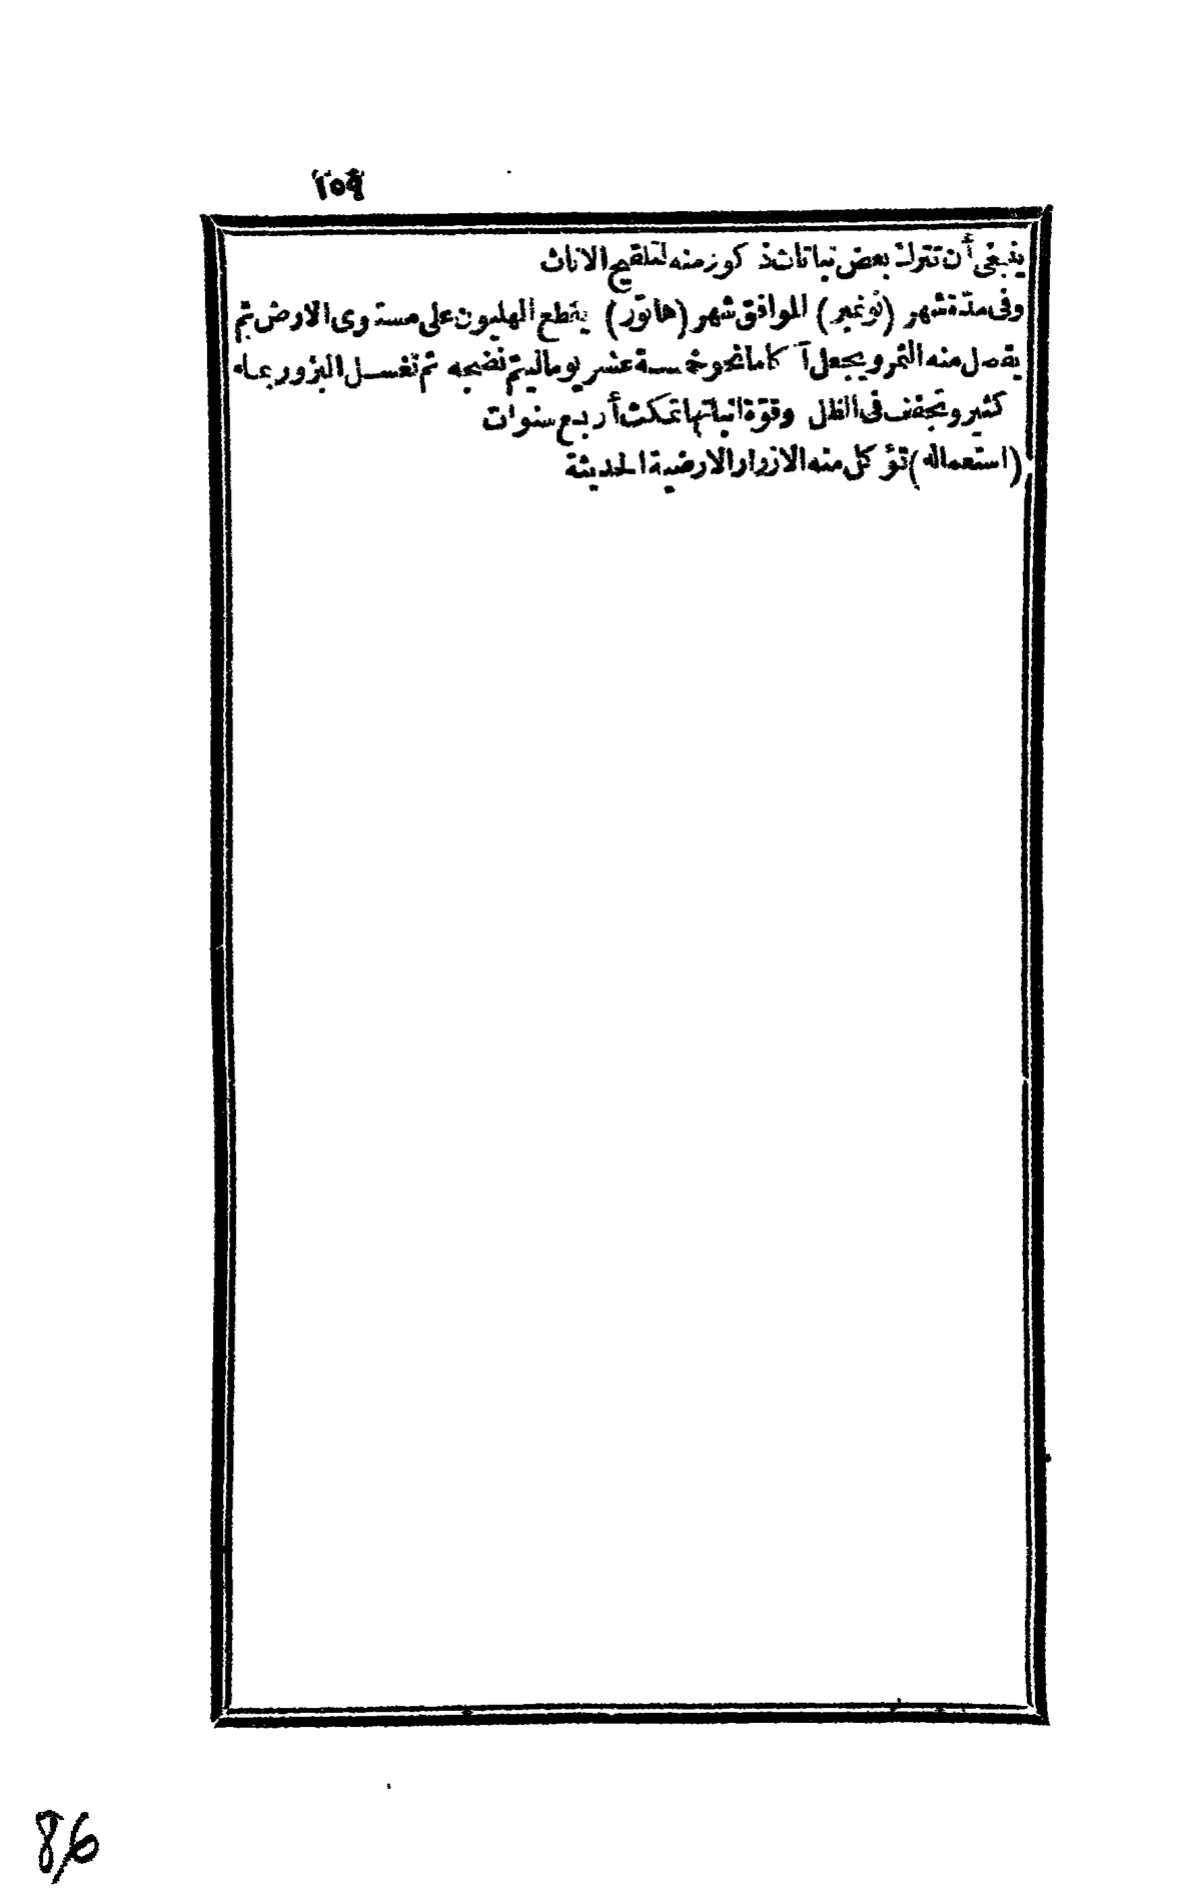 ١٥٩
ينبغى أن تترك بعض نباتات ذكور منه لتلقيح الاناث
وفى مدّة شهر (نونمبر) الموافق شهر (هاتور) يقطع الهليون على مستوى الارض ثم
يفصل منه الثمر ويجعل آكاما نحو خمسة عشر يوما ليتمّ نضجه ثم تغسل البزور بماء
كثير وتجفف فى الظل وقوّة انباتها تمكث أربع سنوات
(استعماله) تؤكل منه الازرار الارضية الحديثة
86